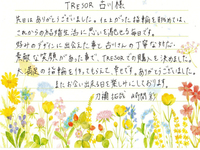 TRESOR 古川様
先日はありがとうございました。仕上がった指輪を眺めては、
これからの結婚生活に思いを馳せる毎日です。
好みのデザインに出会えた事と古川さんの丁寧な対応、
素敵な笑顔があった事で、TRESORでの購入を決めました。
大満足の指輪を作ってもらえて、幸せです。ありがとうございました。
またお会い出来る日を楽しみにしております。